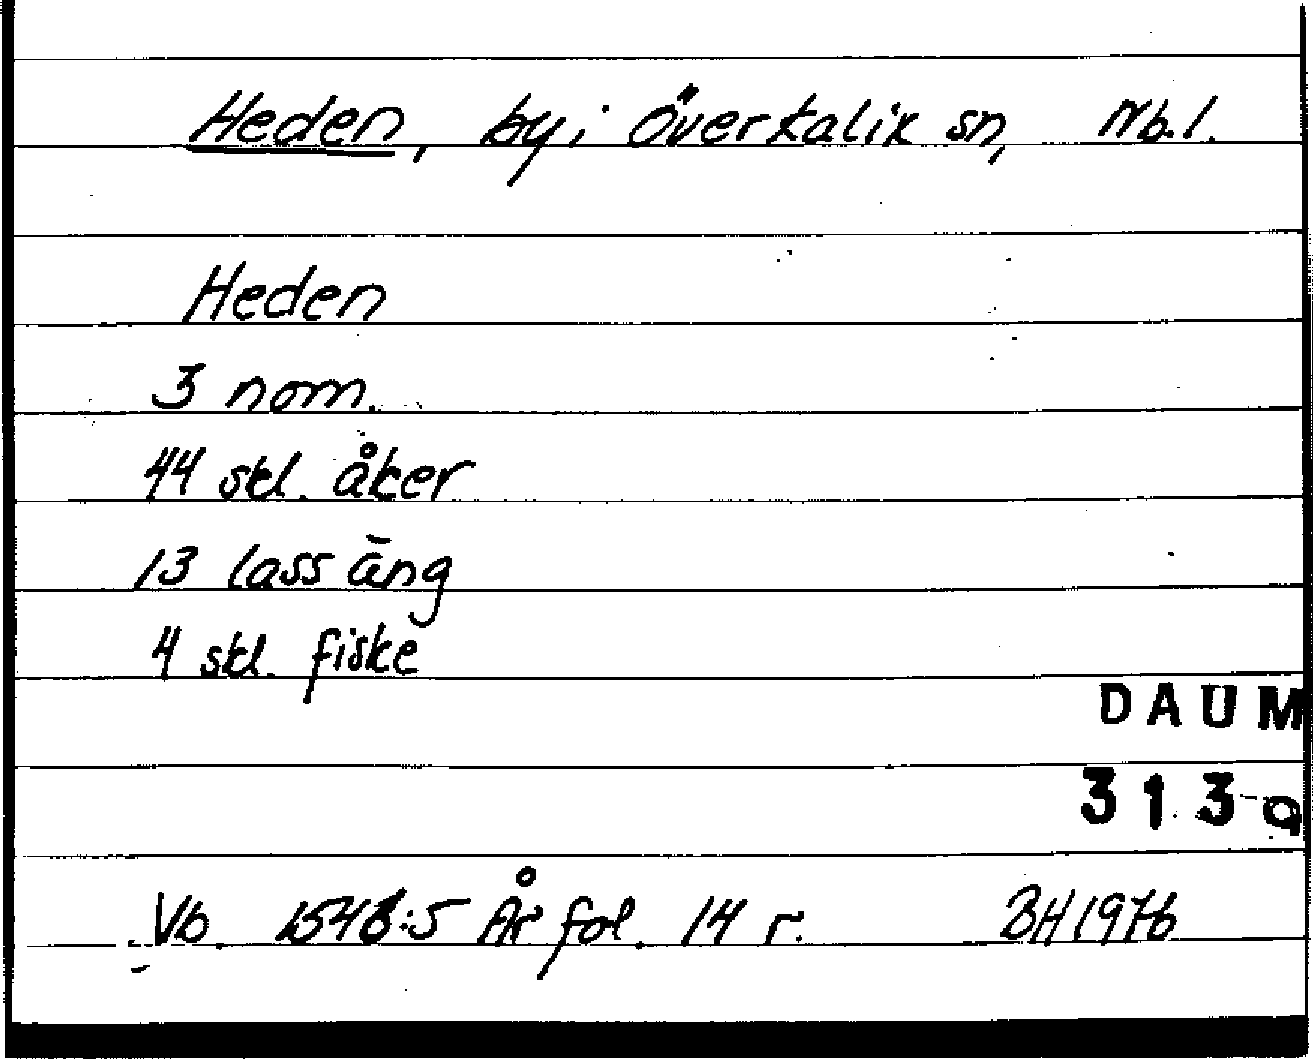 Heden, by i Överkalix sn, Nb. l.
Heden
3 nom.
44 skl. åker
13 lass äng
4 skl. fiske
DAUM
313
Vb. ÅR fol. 14 r. BH 1976